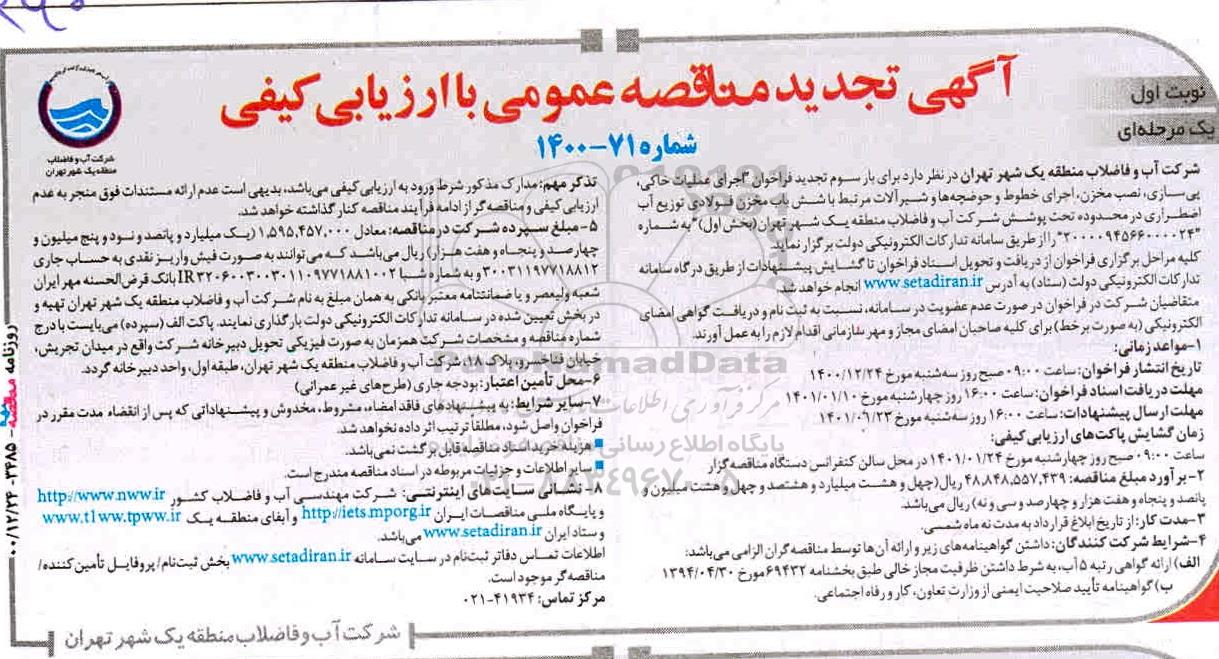 آگهی تجدید مناقصه عمومی با ارزیابی کیفی
شماره ۷۱-۱۴۰۰
نوبت اول
یک مرحله‌ای
شرکت آب و فاضلاب
منطقه یک شهر تهران
شرکت آب و فاضلاب منطقه یک شهر تهران در نظر دارد برای بار سوم تجدید فراخوان "اجرای عملیات خاکی،
پی‌سازی، نصب مخزن، اجرای خطوط و حوضچه‌ها و شیرآلات مرتبط با شش باب مخزن فولادی توزیع آب
اضطراری در محدوده تحت پوشش شرکت آب و فاضلاب منطقه یک شهر تهران (بخش اول)" به شماره
"۲۰۰۰۰۹۴۵۶۶۰۰۰۰۲۴" را از طریق سامانه تدارکات الکترونیکی دولت برگزار نماید.
کلیه مراحل برگزاری فراخوان از دریافت و تحویل اسناد فراخوان تا گشایش پیشنهادات از طریق درگاه سامانه
تدارکات الکترونیکی دولت (ستاد) به آدرس www.setadiran.ir انجام خواهد شد.
متقاضیان شرکت در فراخوان در صورت عدم عضویت در سامانه، نسبت به ثبت نام و دریافت گواهی امضای
الکترونیکی (به صورت برخط) برای کلیه صاحبان امضای مجاز و مهر سازمانی اقدام لازم را به عمل آورند.
۱-مواعد زمانی:
تاریخ انتشار فراخوان: ساعت ۰۹:۰۰ صبح روز سه‌شنبه مورخ ۱۴۰۰/۱۲/۲۴
مهلت دریافت اسناد فراخوان: ساعت ۱۶:۰۰ روز چهارشنبه مورخ ۱۴۰۱/۰۱/۱۰
مهلت ارسال پیشنهادات: ساعت ۱۶:۰۰ روز سه‌شنبه مورخ ۱۴۰۱/۰۹/۲۳
زمان گشایش پاکت‌های ارزیابی کیفی:
ساعت ۰۹:۰۰ صبح روز چهارشنبه مورخ ۱۴۰۱/۰۱/۲۴ در محل سالن کنفرانس دستگاه مناقصه‌گزار
۲-برآورد مبلغ مناقصه: ۴۸,۸۴۸,۵۵۷,۴۳۹ ریال (چهل و هشت میلیارد و هشتصد و چهل و هشت میلیون و
پانصد و پنجاه و هفت هزار و چهارصد و سی و نه) ریال می‌باشد.
۳-مدت کار: از تاریخ ابلاغ قرارداد به مدت نه ماه شمسی.
۴-شرایط شرکت کنندگان: داشتن گواهینامه‌های زیر و ارائه آن‌ها توسط مناقصه‌گران الزامی می‌باشد:
الف) ارائه گواهی رتبه ۵ آب، به شرط داشتن ظرفیت مجاز خالی طبق بخشنامه ۶۹۴۳۲ مورخ ۱۳۹۴/۰۴/۳۰
ب) گواهینامه تأیید صلاحیت ایمنی از وزارت تعاون، کار و رفاه اجتماعی.
تذکر مهم: مدارک مذکور شرط ورود به ارزیابی کیفی می‌باشد، بدیهی است عدم ارائه مستندات فوق منجر به عدم
ارزیابی کیفی و مناقصه‌گر از ادامه فرآیند مناقصه کنار گذاشته خواهد شد.
۵-مبلغ سپرده شرکت در مناقصه: معادل ۱,۵۹۵,۴۵۷,۰۰۰ (یک میلیارد و پانصد و نود و پنج میلیون و
چهارصد و پنجاه و هفت هزار) ریال می‌باشد که می‌توانند به صورت فیش واریز نقدی به حساب جاری
۳۰۰۳۱۱۹۷۷۱۸۸۱۲ و به شماره شبا IR۳۲۰۶۰۰۳۰۰۳۰۱۱۰۹۷۷۱۸۸۱۰۰۲ بانک قرض‌الحسنه مهر ایران
شعبه ولیعصر و یا ضمانتنامه معتبر بانکی به همان مبلغ به نام شرکت آب و فاضلاب منطقه یک شهر تهران تهیه و
در بخش تعیین شده در سامانه تدارکات الکترونیکی دولت بارگذاری نمایند. پاکت الف (سپرده) می‌بایست با درج
شماره مناقصه و مشخصات شرکت همزمان به صورت فیزیکی تحویل دبیرخانه شرکت واقع در میدان تجریش،
خیابان فناخسرو، پلاک ۱۸، شرکت آب و فاضلاب منطقه یک شهر تهران، طبقه اول، واحد دبیرخانه گردد.
۶-محل تأمین اعتبار: بودجه جاری (طرح‌های غیر عمرانی)
۷-سایر شرایط: به پیشنهادهای فاقد امضاء، مشروط، مخدوش و پیشنهاداتی که پس از انقضاء مدت مقرر در
فراخوان واصل شود، مطلقا ترتیب اثر داده نخواهد شد.
■ هزینه خرید اسناد مناقصه قابل برگشت نمی‌باشد.
■ سایر اطلاعات و جزئیات مربوطه در اسناد مناقصه مندرج است.
۸- نشانی سایت‌های اینترنتی: شرکت مهندسی آب و فاضلاب کشور http://www.nww.ir
و پایگاه ملی مناقصات ایران http://iets.mporg.ir و آبفای منطقه یک www.t1ww.tpww.ir
و ستاد ایران www.setadiran.ir می‌باشد.
اطلاعات تماس دفاتر ثبت‌نام در سایت سامانه www.setadiran.ir بخش ثبت‌نام/پروفایل تأمین‌کننده/
مناقصه‌گر موجود است.
مرکز تماس: ۴۱۹۳۴-۰۲۱
شرکت آب و فاضلاب منطقه یک شهر تهران
روزنامه مناقصه - ۳۴۸۵ - ۰۰/۱۲/۲۴
ParsNamadData
پایگاه اطلاع رسانی
۰۲۱-۸۸۳۴۹۶۷۰-۵